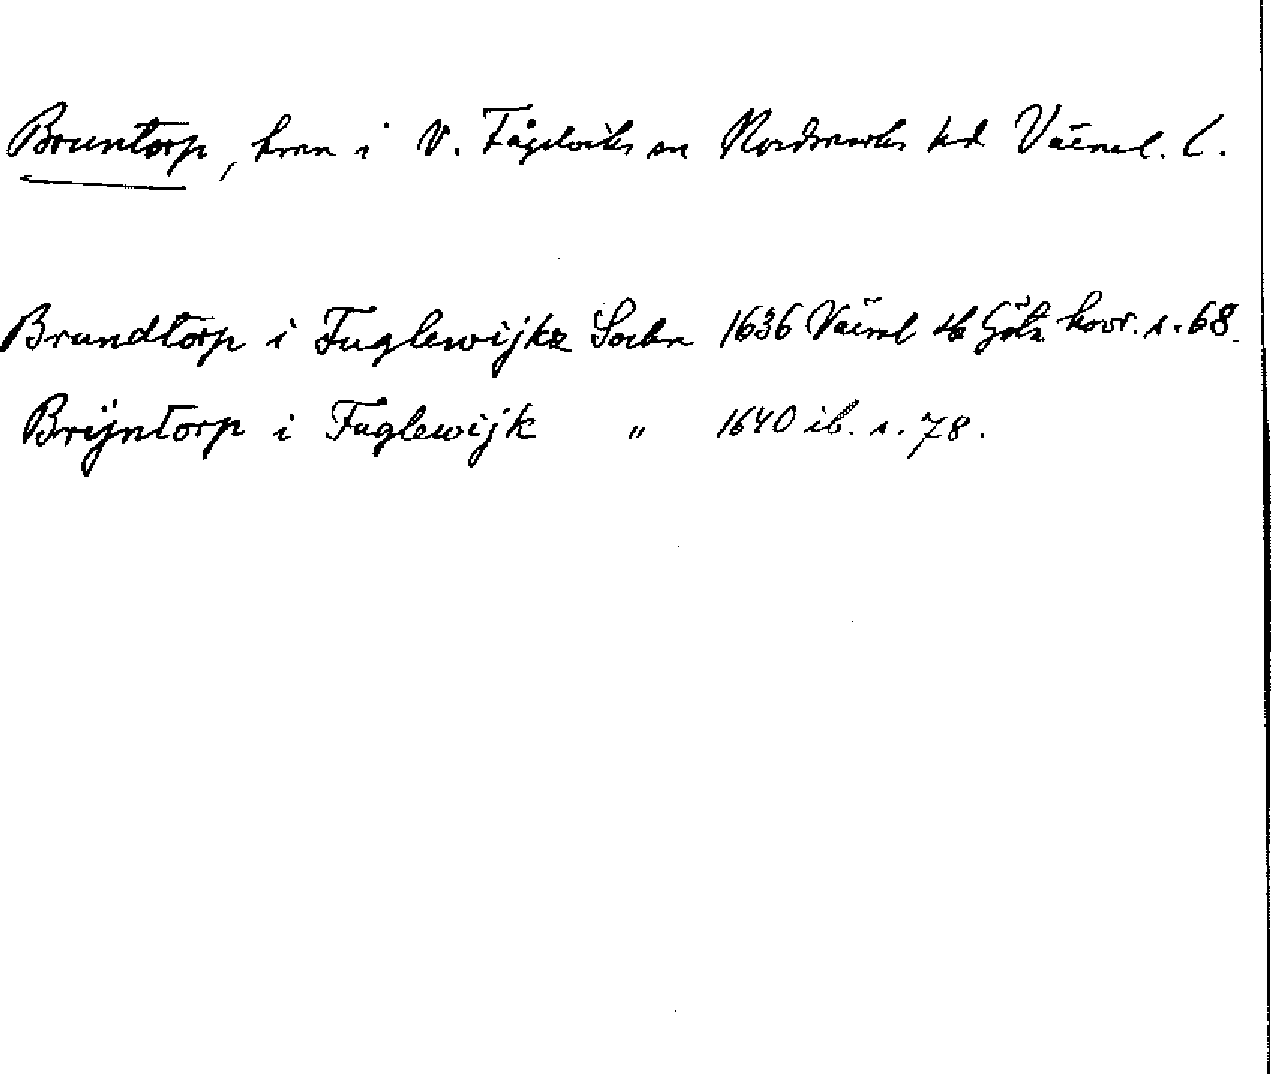 Bruntorp, hmn i V. Fågelviks sn Nordmarks hd Värml. l.
Brundtorp i Fuglewijkz Sockn 1636 Värml Göta hovr. s. 68.
Brÿntorp i Fuglewijk " 1640 ib. s. 78.